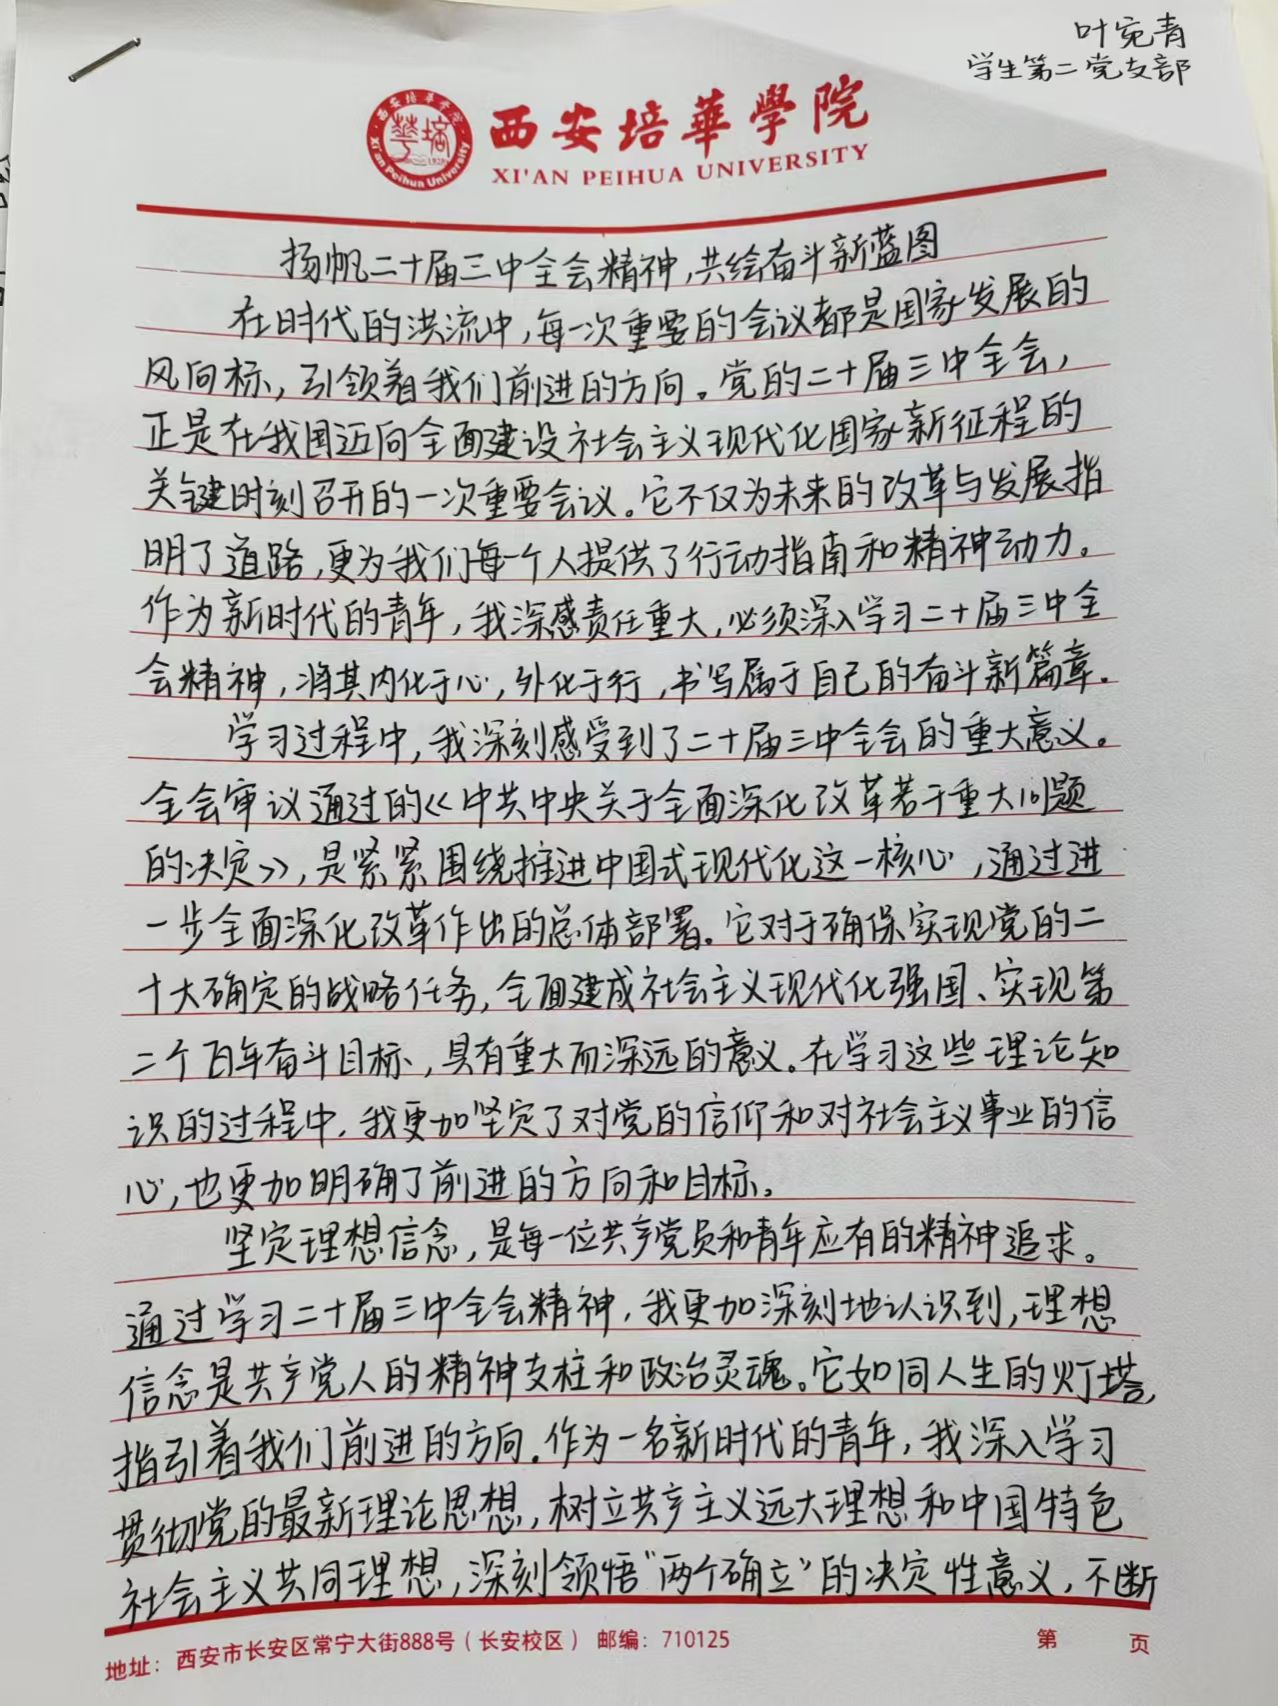 叶宛青
学生第二党支部
西安培華學院
XI'AN PEIHUA UNIVERSITY
扬帆二十届三中全会精神,共绘奋斗新蓝图
在时代的洪流中,每一次重要的会议都是国家发展的
风向标,引领着我们前进的方向。党的二十届三中全会,
正是在我国迈向全面建设社会主义现代化国家新征程的
关键时刻召开的一次重要会议。它不仅为未来的改革与发展指
明了道路,更为我们每一个人提供了行动指南和精神动力。
作为新时代的青年,我深感责任重大,必须深入学习二十届三中全
会精神,将其内化于心,外化于行,书写属于自己的奋斗新篇章.
学习过程中,我深刻感受到了二十届三中全会的重大意义。
全会审议通过的《中共中央关于全面深化改革若干重大问题
的决定》,是紧紧围绕推进中国式现代化这一核心,通过进
一步全面深化改革作出的总体部署。它对于确保实现党的二
十大确定的战略任务,全面建成社会主义现代化强国、实现第
二个百年奋斗目标,具有重大而深远的意义。在学习这些理论知
识的过程中,我更加坚定了对党的信仰和对社会主义事业的信
心,也更加明确了前进的方向和目标。
坚定理想信念,是每一位共产党员和青年应有的精神追求。
通过学习二十届三中全会精神,我更加深刻地认识到,理想
信念是共产党人的精神支柱和政治灵魂。它如同人生的灯塔,
指引着我们前进的方向.作为一名新时代的青年,我深入学习
贯彻党的最新理论思想,树立共产主义远大理想和中国特色
社会主义共同理想,深刻领悟"两个确立"的决定性意义,不断
地址：西安市长安区常宁大街888号（长安校区） 邮编：710125
第 页